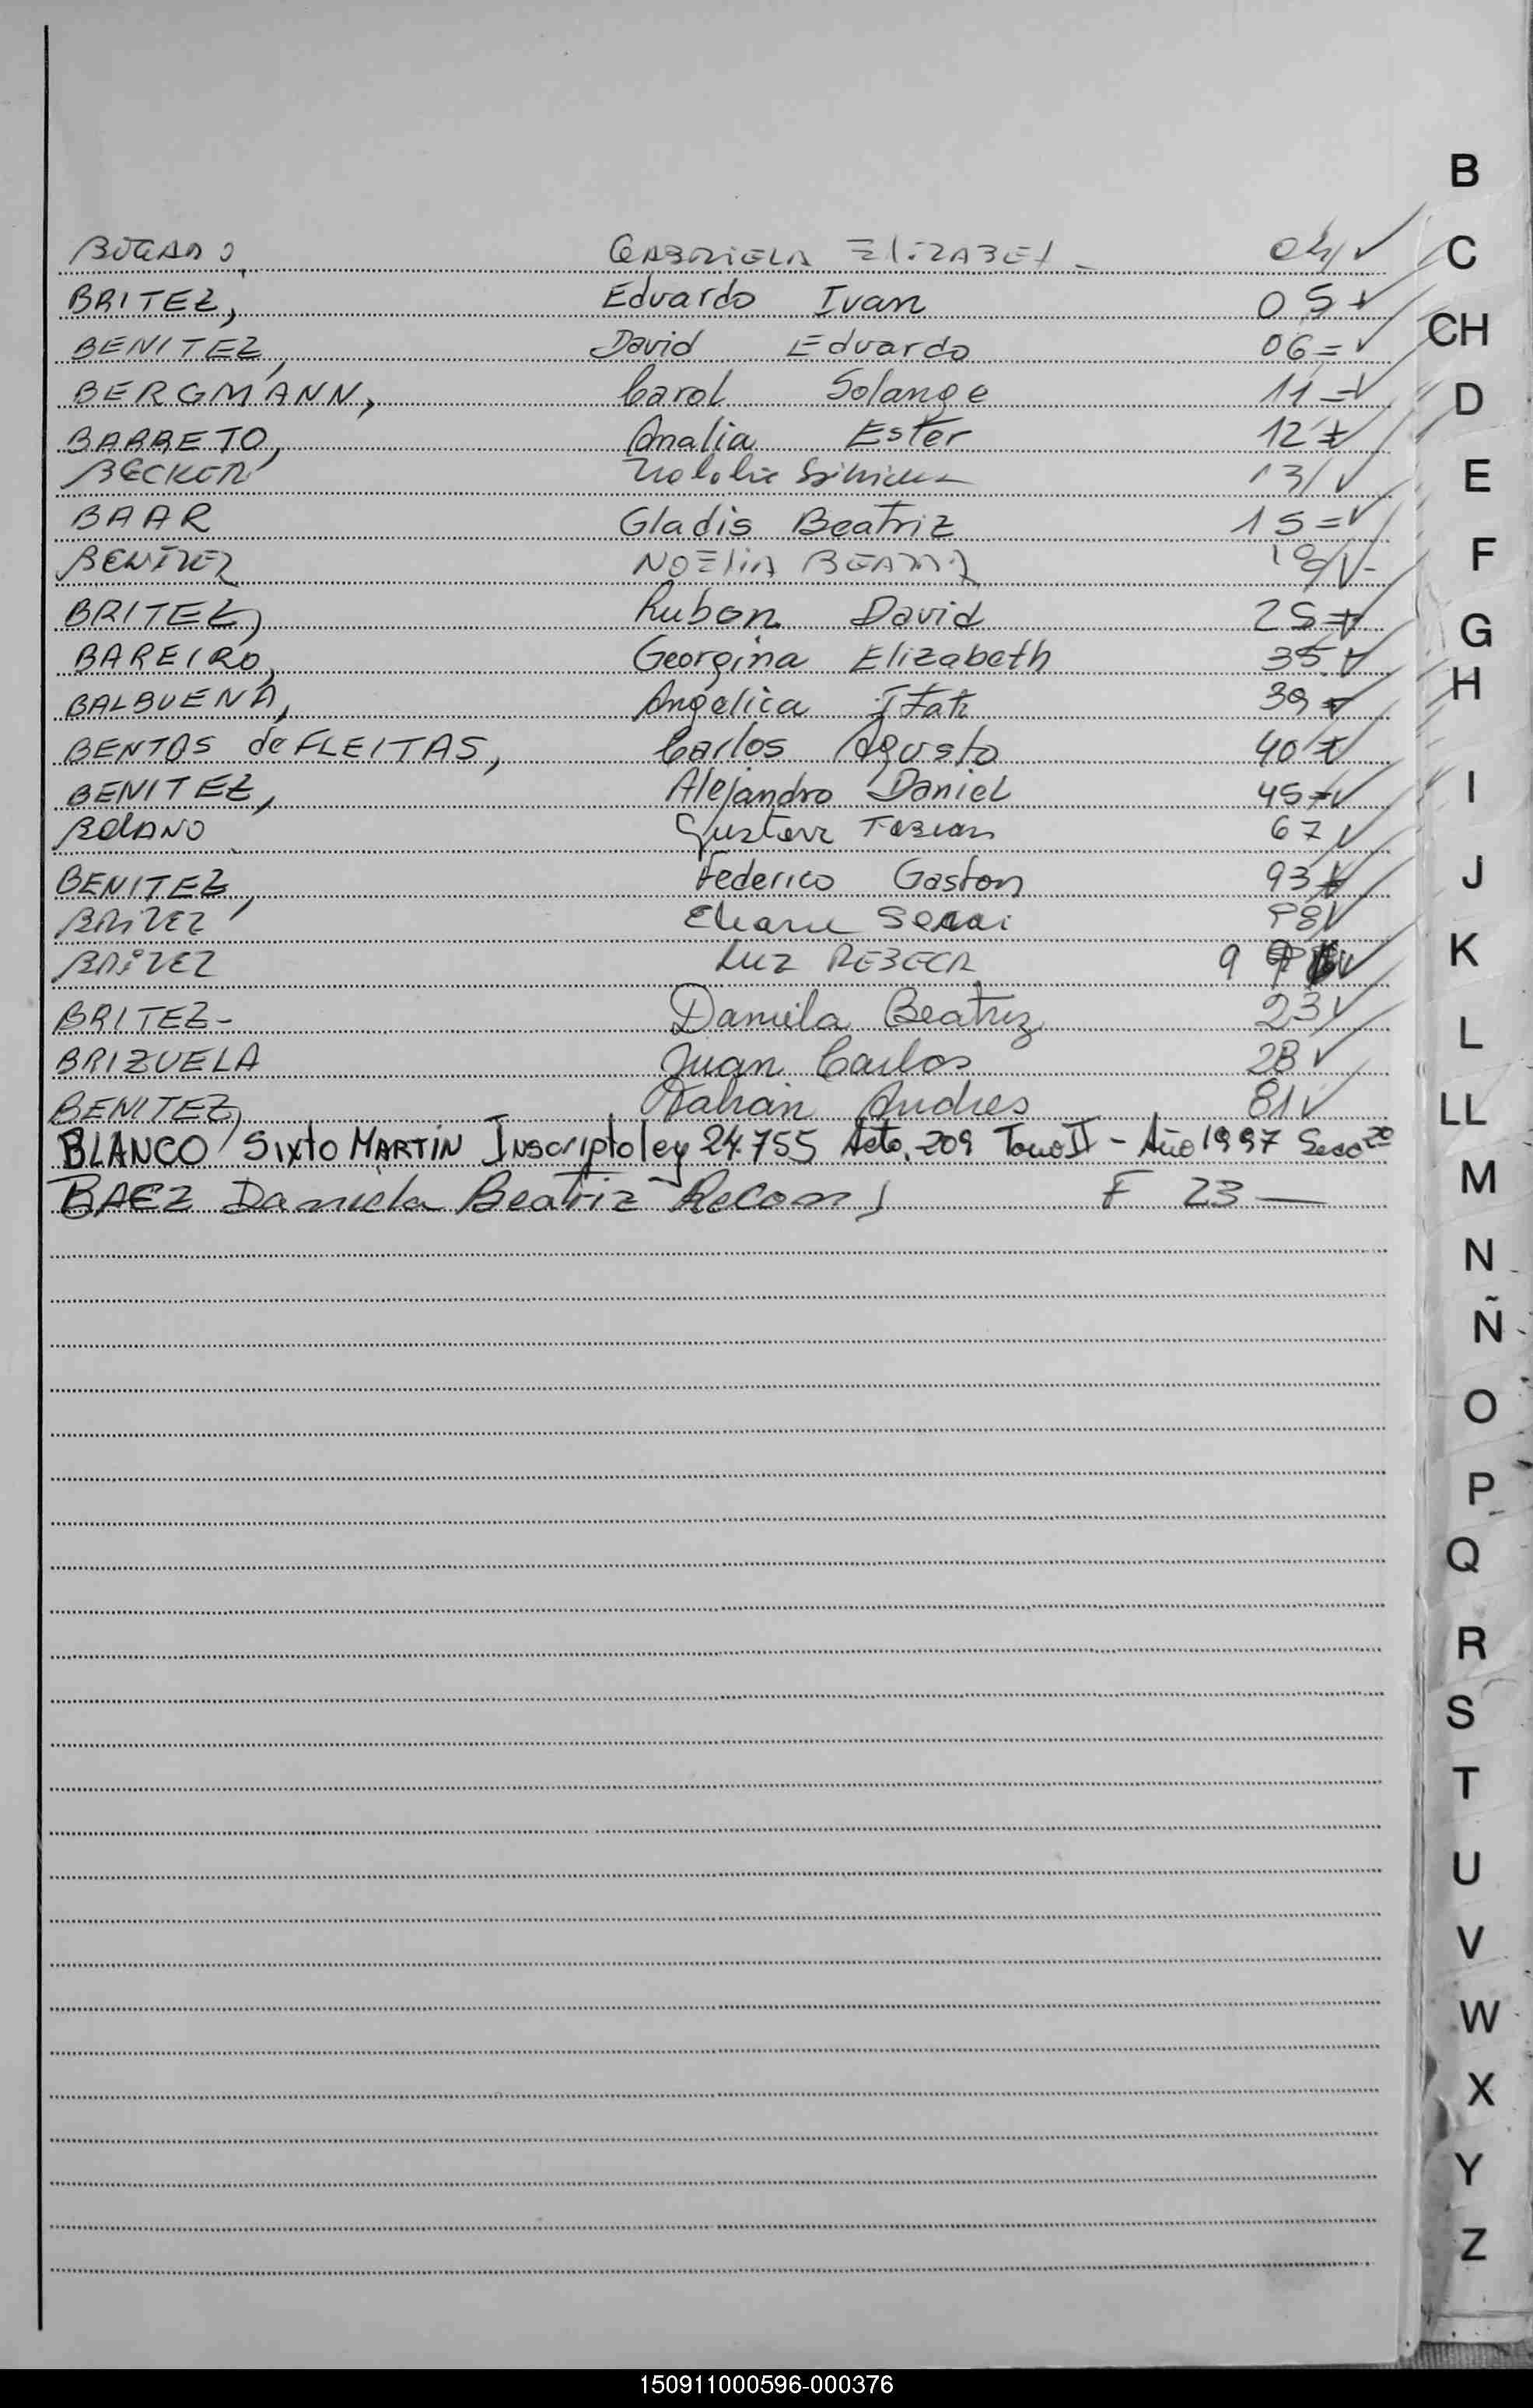 BOGADO, GABRIELA ELIZABET - 04/
BRITEZ, Eduardo Ivan 05=
BENITEZ, David Eduardo 06=
BERGMANN, Carol Solange 11=
BARRETO, Analia Ester 12=
BECKER 13/
BAAR Gladis Beatriz 15=
BENITEZ NOELIA 19/
BRITEZ, Ruben David 25=
BAREIRO, Georgina Elizabeth 35
BALBUENA, Angelica Itati 39=
BENTOS de FLEITAS, Carlos Agusto 40=
BENITEZ, Alejandro Daniel 45=
BOLANO Gustavo Fabian 67
BENITEZ, Federico Gaston 93
BRITEZ Eliane 98
BRITEZ LUZ REBECA 99
BRITEZ- Daniela Beatriz 23
BRIZUELA Juan Carlos 28
BENITEZ, Andres 81
BLANCO Sixto MARTIN Inscripto ley 24.755 Acto. 209 Tomo II - Año 1997
BAEZ Daniela Beatriz F 23
B
C
CH
D
E
F
G
H
I
J
K
L
LL
M
N
Ñ
O
P
Q
R
S
T
U
V
W
X
Y
Z
150911000596-000376